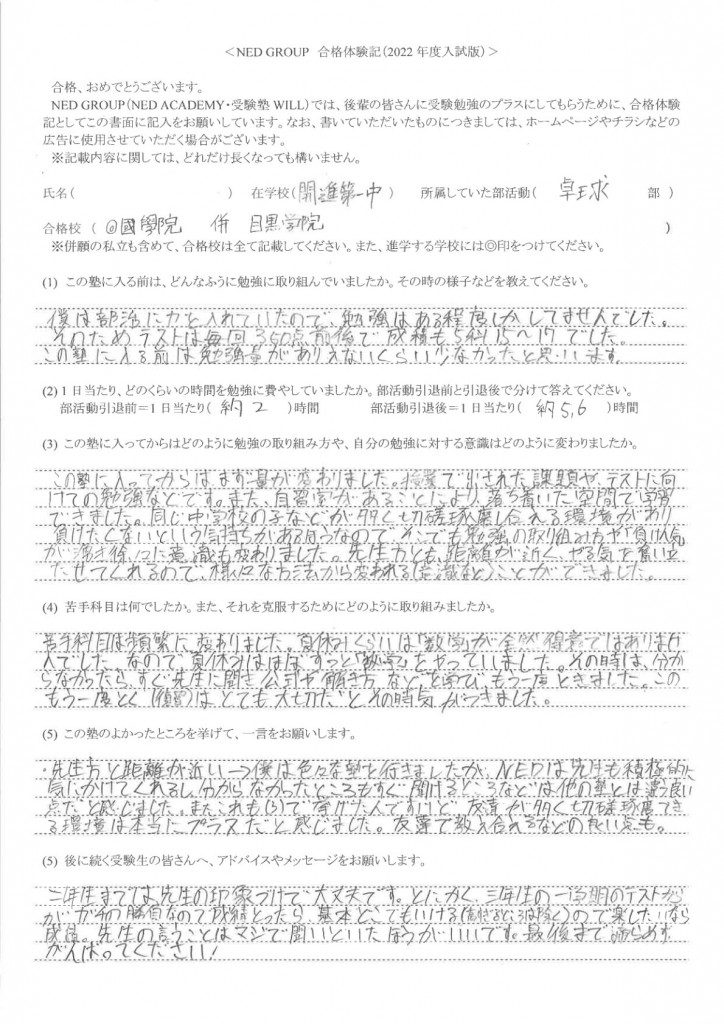 ＜NED GROUP 合格体験記（2022 年度入試版）＞
合格、おめでとうございます。
NED GROUP（NED ACADEMY・受験塾 WILL）では、後輩の皆さんに受験勉強のプラスにしてもらうために、合格体験
記としてこの書面に記入をお願いしています。なお、書いていただいたものにつきましては、ホームページやチラシなどの
広告に使用させていただく場合がございます。
※記載内容に関しては、どれだけ長くなっても構いません。
氏名（ ） 在学校（開進第一中） 所属していた部活動（ 卓球 部）
合格校（ ◎國學院 併 目黒学院 ）
※併願の私立も含めて、合格校は全て記載してください。また、進学する学校には◎印をつけてください。
(1) この塾に入る前は、どんなふうに勉強に取り組んでいましたか。その時の様子などを教えてください。
僕は部活に力を入れていたので、勉強はある程度しかしてませんでした。
そのためテストは毎回350点前後で成績も5科15～17でした。
この塾に入る前は勉強量がありえないくらい少なかったと思います。
(2) 1 日当たり、どのくらいの時間を勉強に費やしていましたか。部活動引退前と引退後で分けて答えてください。
部活動引退前＝1 日当たり（ 約2 ）時間 部活動引退後＝1 日当たり（ 約5,6 ）時間
(3) この塾に入ってからはどのように勉強の取り組み方や、自分の勉強に対する意識はどのように変わりましたか。
この塾に入ってからは、まず量が変わりました。授業で出された課題や、テストに向
けての勉強などです。また、自習室があることにより、落ち着いた空間で学習
できました。同じ中学校の子などが多く切磋琢磨し合える環境があり
負けたくないという気持ちがあるほうなので、そこでも勉強の取り組み方や「負けん気」
が湧き徐々に意識も変わりました。先生方とも、距離が近く、やる気を奮い立
たせてくれるので、様々な方法から変われる（意識など）ことができました。
(4) 苦手科目は何でしたか。また、それを克服するためにどのように取り組みましたか。
苦手科目は頻繁に変わりました。夏休みくらいは「数学」が全然得意ではありませ
んでした。なので、夏休みはほぼずっと「数学」をやっていました。その時は、分か
らなかったら、すぐ先生に聞き公式や解き方などを学び、もう一度ときました。この
もう一度とく（復習）は、とても大切だとその時気がつきました。
(5) この塾のよかったところを挙げて、一言をお願いします。
・先生方と距離が近い→僕は色々な塾と行きましたが、NEDは先生も積極的に
気にかけてくれるし、分からなかったところもすぐ聞けるところなどは他の塾とは違う良い
点だと感じました。またこれも(3)で挙げたんですけど、友達が多く切磋琢磨でき
る環境は本当にプラスだと感じました。友達で教え合えるなどの良い点も。
(5) 後に続く受験生の皆さんへ、アドバイスやメッセージをお願いします。
二年生までは先生の印象づけで大丈夫です。とにかく、三年生の一学期のテストから
がガチの勝負なので成績とったら、基本どこでもいける（高すぎるところは除く）ので楽したいなら
成績。先生の言うことはマジで聞いといたほうがいいです。最後まで諦めず
がんばってください！